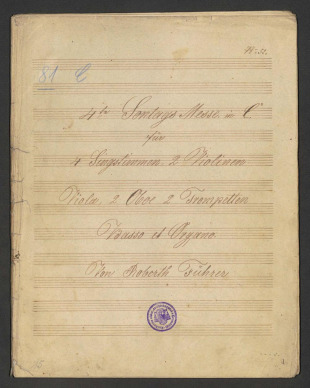 No: 52.
81 C
4te Sontags Messe in C
für
4 Singstimmen 2 Violinen
Viola, 2 Oboe 2 Trompetten
Basso et Organo
Von Roberth Führer